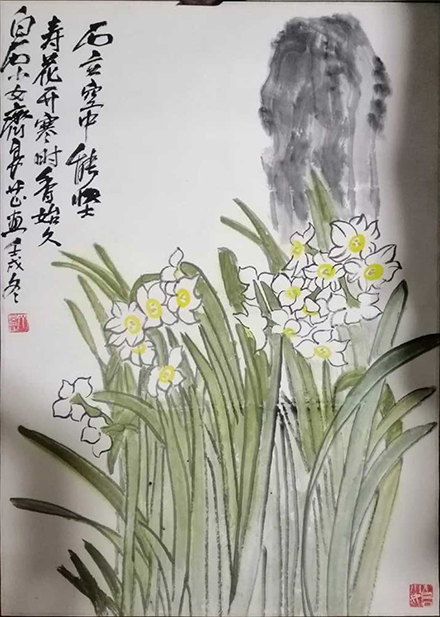 石立空中能坚
寿花开寒时香始久
白石小女齊良芷画壬戌冬